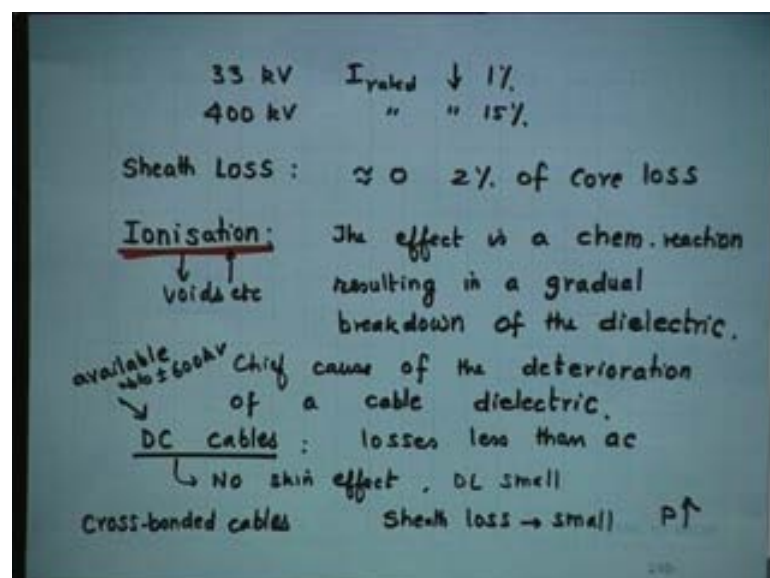 33 kV I rated ↓ 1%
400 kV " " 15%
Sheath Loss : ≈ 0 2% of core loss
Ionisation: The effect is a chem. reaction
voids etc resulting in a gradual
breakdown of the dielectric.
available upto ± 600kV Chief cause of the deterioration
of a cable dielectric.
DC cables : losses less than ac
↳ No skin effect . DL small
Cross-bonded cables Sheath loss → small P↑